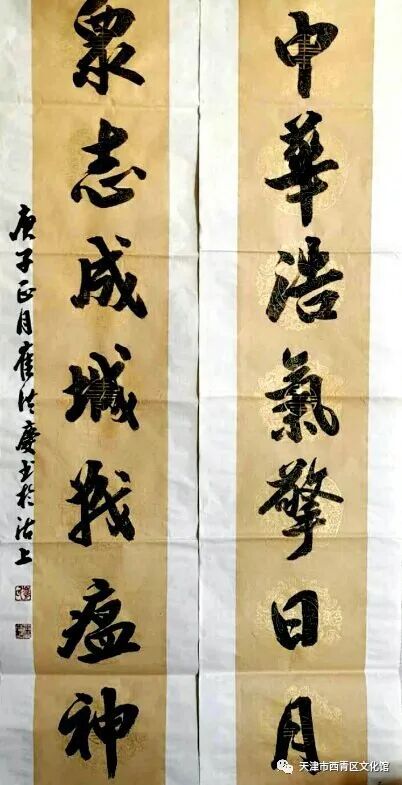 中華浩氣擎日月
眾志成城戰瘟神
庚子正月崔洪慶书於沽上
天津市西青区文化馆